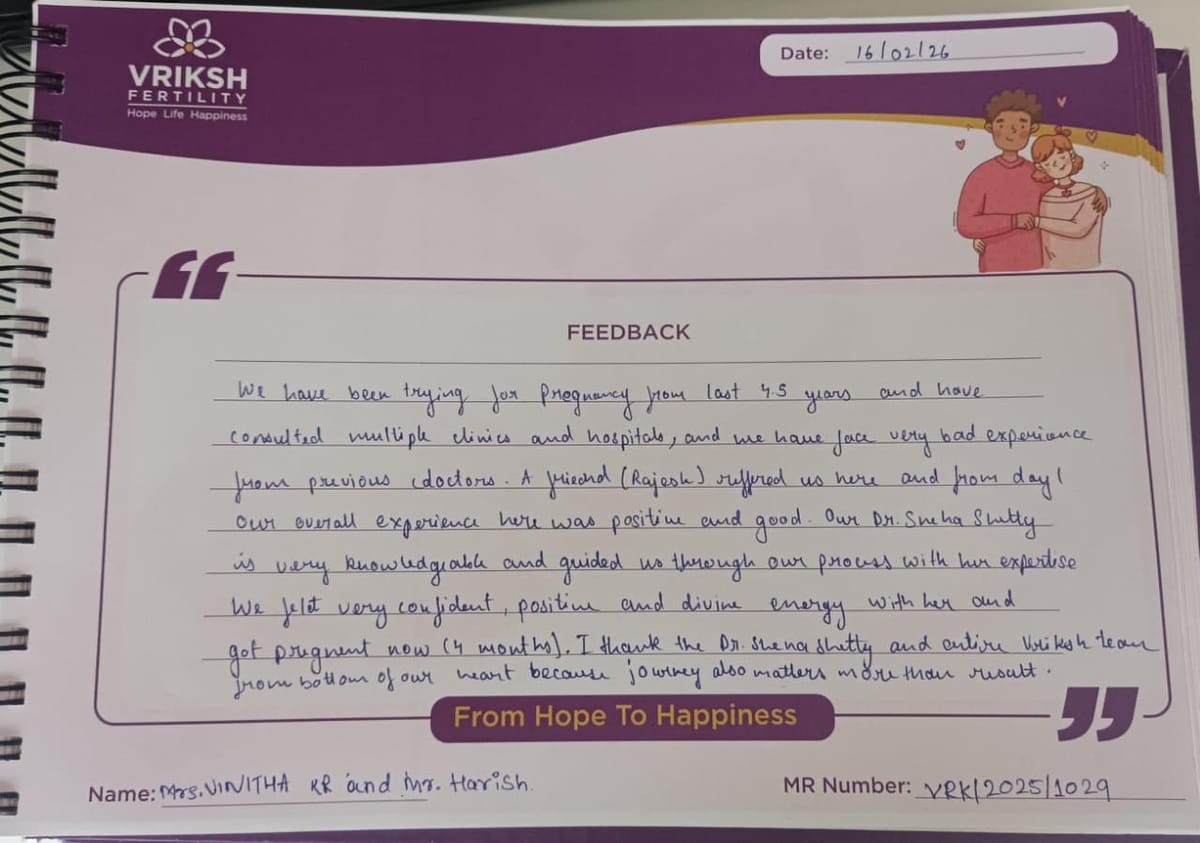 VRIKSH
FERTILITY
Hope Life Happiness
Date: 16/02/26
FEEDBACK
We have been trying for Pregnancy from last 4.5 years and have
consulted multiple clinics and hospitals, and we have face very bad experience
from previous doctors. A friend (Rajesh) reffered us here and from day 1
our overall experience here was positive and good. Our Dr. Sneha Shetty
is very knowledgeable and guided us through our process with her expertise
We felt very confident, positive and divine energy with her and
got pregnent now (4 months). I thank the Dr. Shena Shetty and entire Vriksh team
from bottom of our heart because journey also matters more than result.
From Hope To Happiness
Name: Mrs. VINITHA KR and Mr. Harish.
MR Number: VRK/2025/1029